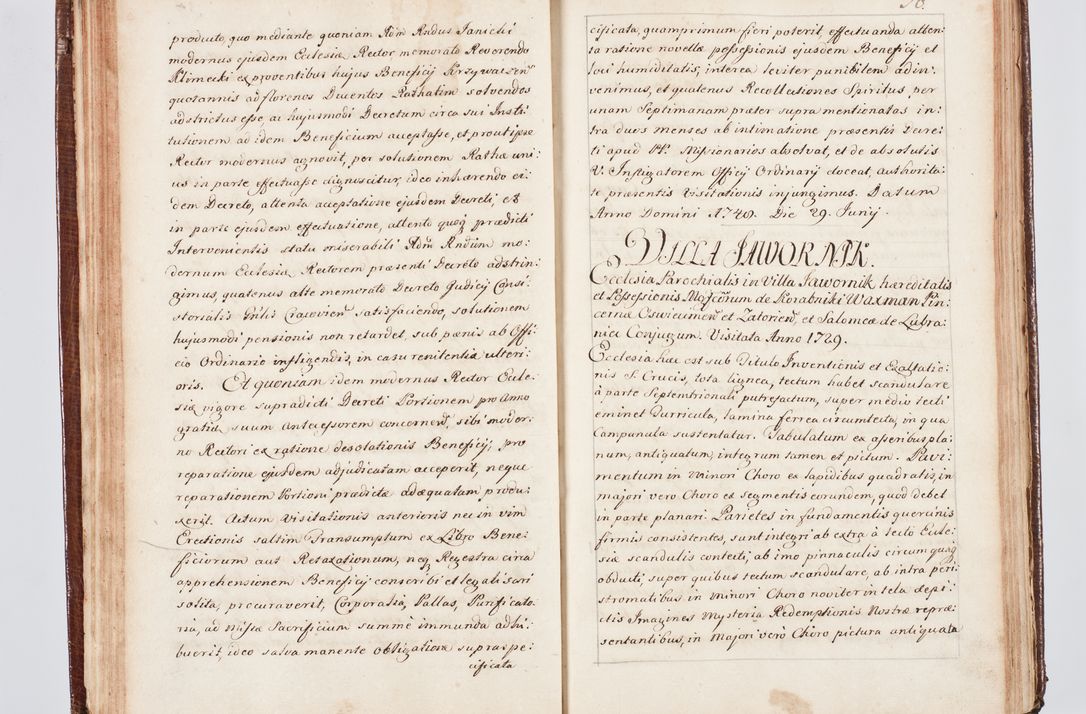 producto, quo mediante quoniam Adm Rndus Janicki
modernus ejusdem Ecclesiæ Rector, memorato Reverendo
Klimecki ex proventibus hujus Beneficij
quotannis ad florenos Ducentos Rathatim solvendos
adstrictus esse, ac hujusmodi Decretum circa sui Insti:
tutionem ad idem Beneficium acceptasse, et prout ipse
Rector modernus agnovit, per solutionem Ratha uni:
us in parte effectuasse dignuscitur, ideo inhærendo ei:
dem Decreto, attenta acceptatione ejusdem Decreti, et
in parte ejusdem effectuatione, attento quoq prædicti
Intervenientis statu miserabili Adm Rndum mo:
dernum Ecclesiæ Rectorem præsenti Decreto adstrin:
gimus, quatenus alte memorato Decreto Judicij Consi:
storialis Gnlis Cracovien satisfaciendo, solutionem
hujusmodi pensionis non retardet, sub pænis ab Offi:
cio Ordinario infligendis, in casu renitentiæ ulteri:
oris. Et quoniam idem modernus Rector Eccle:
siæ vigore supradicti Decreti Portionem pro Anno
gratiæ suum Antecessorem concernen, sibi moder:
no Rectori ex ratione desolationis Beneficij, pro
reparatione ejusdem adjudicatam acceperit, neque
reparationem Portioni prædictæ adæquatam produ:
xerit. Actum Visitationis anterioris nec in vim
Erectionis saltim Transumptum ex Libro Bene:
ficiorum aut Retaxationum, neq Regestra circa
apprehensionem Beneficij conscribi et legalisari
solita, procuraverit, Corporalia, Pallas, Purificato:
ria, ad Missæ Sacrificium summè immunda adhi:
buerit, ideo salva manente obligatione supraspe:
cificata
70.
cificata, quamprimum fieri poterit, effectuanda atten:
ta ratione novellæ possessionis ejusdem Beneficij et
loci humiditatis, interea leviter punibilem adin:
venimus, et quatenus Recollectiones Spiritus, per
unam Septimanam præter supra mentionatas in:
tra duos menses ab intimatione præsentis Decre:
ti apud PP. Missionarios absolvat, et de absolutis
V. Instigatorem Officij Ordinarij doceat, authorita:
te præsentis Visitationis injungimus. Datum
Anno Domini 1740. Die 29. Junij.
VILLA JAWORNIK.
Ecclesia Parochialis in Villa Jawornik hæreditalis
et Possessionis de Korabniki Waxman Pin:
cernæ Oswiecimen et Zatorien, et Salomeæ de Lubra:
niec Conjugum. Visitata Anno 1729.
Ecclesia hæc est sub Titulo Inventionis et Exaltatio:
nis S. Crucis, tota lignea, tectum habet scandulare
à parte Septemtrionali putrefactum, super medio tecti
eminet Turricula, lamina ferrea circumtecta, in qua
Campanula sustentatur. Tabulatum ex asseribus pla:
num, antiquatum, integrum tamen et pictum. Pavi:
mentum in minori Choro ex lapidibus quadratis, in
majori vero Choro ex segmentis eorundem, quod debet
in parte planari. Parietes in fundamentis quercinis
firmis consistentes, sunt integri ab extra à tecto Eccle:
siæ scandulis contecti, ab imo pinnaculis circumquaq
obducti, super quibus tectum scandulare, ab intra peri:
stromatibus in minori Choro noviter in tela depi:
ctis Imagines Mysteria Redemptionis Nostræ repræ:
sentantibus, in Majori vero Choro pictura antiquata